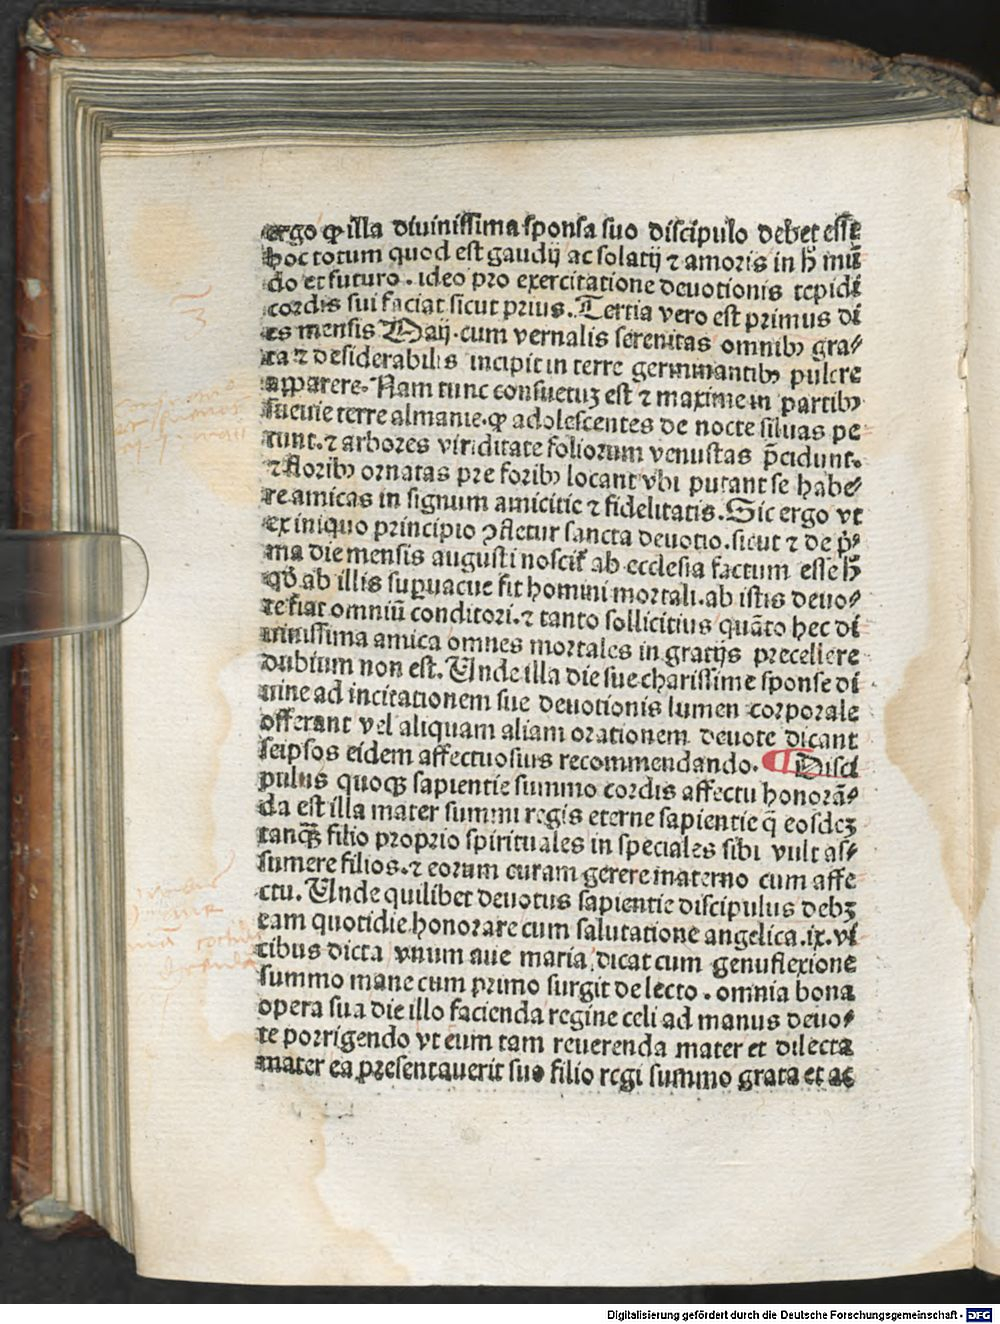 ergo ꝙ illa diuinissima sponsa suo discipulo debet esse
hoc totum quod est gaudij ac solatij ⁊ amoris in h̄ mū
do et futuro . ideo pro exercitatione deuotionis tepidi
cordis sui faciat sicut prius. Tertia vero est primus di
es mensis Maij. cum vernalis serenitas omnibꝰ gra⸗
ta ⁊ desiderabilis incipit in terre germinantibꝰ pulcre
apparere. Nam tunc consuetuꝫ est ⁊ maxime in partibꝰ
sueuie terre almanie. ꝙ adolescentes de nocte siluas pe⸗
tunt. ⁊ arbores viriditate foliorum venustas p̄cidunt.
⁊ floribꝰ ornatas pre foribꝰ locant vbi putant se habe⸗
re amicas in signum amicitie ⁊ fidelitatis. Sic ergo vt
ex iniquo principio ꝯfletur sancta deuotio. sicut ⁊ de p̄⸗
ma die mensis augusti noscit᷑ ab ecclesia factum esse h̄
qd̄ ab illis suꝑuacue fit homini mortali. ab istis deuo⸗
te fiat omniū conditori. ⁊ tanto sollicitius quāto hec di
uinissima amica omnes mortales in gratijs precellere
dubium non est. Unde illa die sue charissime sponse di
uine ad incitationem sue deuotionis lumen corporale
offerant vel aliquam aliam orationem deuote dicant
seipsos eidem affectuosius recommendando. ¶ Disci
pulus quoqꝫ sapientie summo cordis affectu honorā⸗
da est illa mater summi regis eterne sapientie q̄ eosdeꝫ
tanqꝫ̄ filio proprio spirituales in speciales sibi vult as⸗
sumere filios. ⁊ eorum curam gerere materno cum affe
ctu. Unde quilibet deuotus sapientie discipulus debꝫ
eam quotidie honorare cum salutatione angelica. ix. vi
cibus dicta vnum aue maria dicat cum genuflexione
summo mane cum primo surgit de lecto . omnia bona
opera sua die illo facienda regine celi ad manus deuo⸗
te porrigendo vt eum tam reuerenda mater et dilecta
mater ea presentauerit suo filio regi summo grata et ac
Digitalisierung gefördert durch die Deutsche Forschungsgemeinschaft - DFG